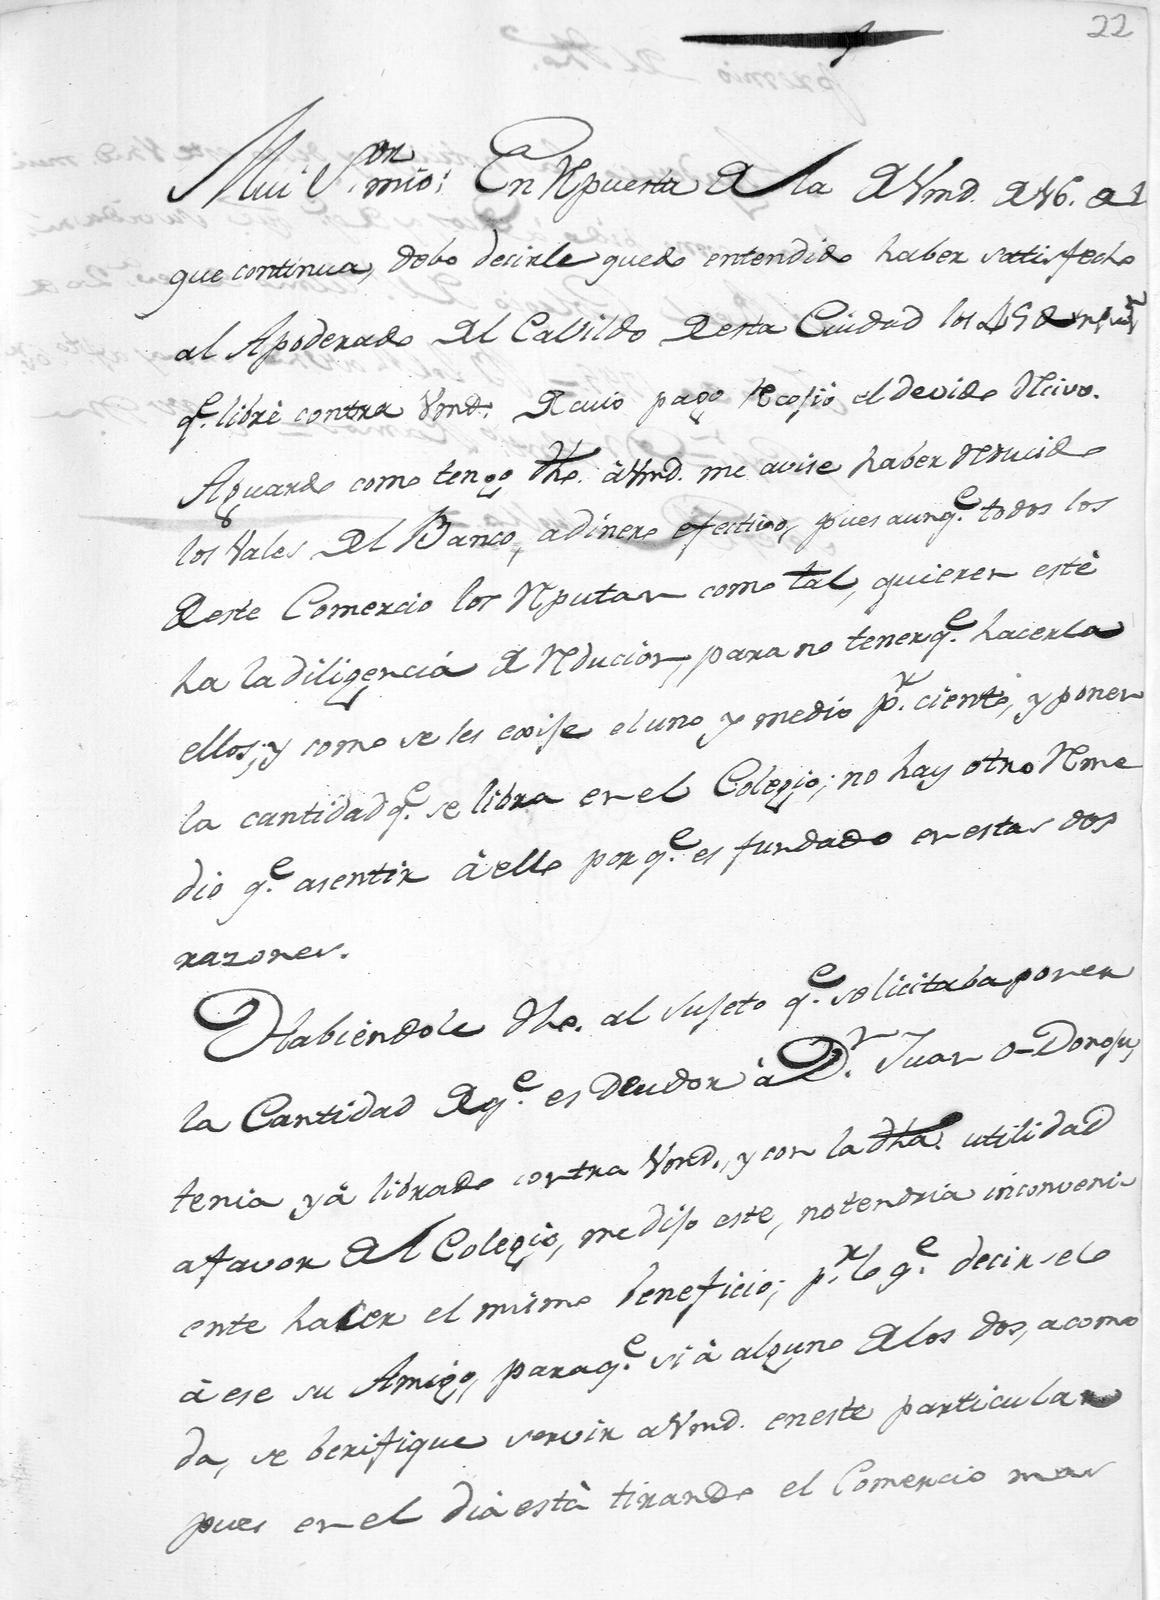 22
Mui S.or mio: En Rpuesta de la de Vmd. de 16. del
que continua, debo decirle quedo entendido haber satisfecho
al Apoderado del Cabildo de esta Ciudad los
q.e librè contra Vmd. de cuio pago recojió el devido Rcivo.
Aguardo como tengo dho. à Vmd. me avise haber reducido
los Vales del Banco, a dinero efectivo, pues aunq.e todos los
de este Comercio los Rputan como tal, quieren estè
ha la diligencià de Rducion, para no tener q.e hacerla
ellos; y como se les exije el uno y medio p.r ciento, y poner
la cantidad q.e se libra en el Colegio; no hay otro Rme
dio q.e asentir à ello por q.e es fundado en estas dos
razones.
Habièndole dho. al sujeto q.e solicitaba poner
la Cantidad de q.e es Deudor à D.n Juan O-Donoju,
tenia yà librado contra Vmd., y con la dha. utilidad
a favor del Colegio, me dijo este, no tendria inconveni-
ente hacer el mismo beneficio; p.r lo q.e decirselo
à ese su Amigo, para q.e si à alguno de los dos, acomo
da, se berifique servir a Vmd. en este particular
pues en el dia està tirando el Comercio mas